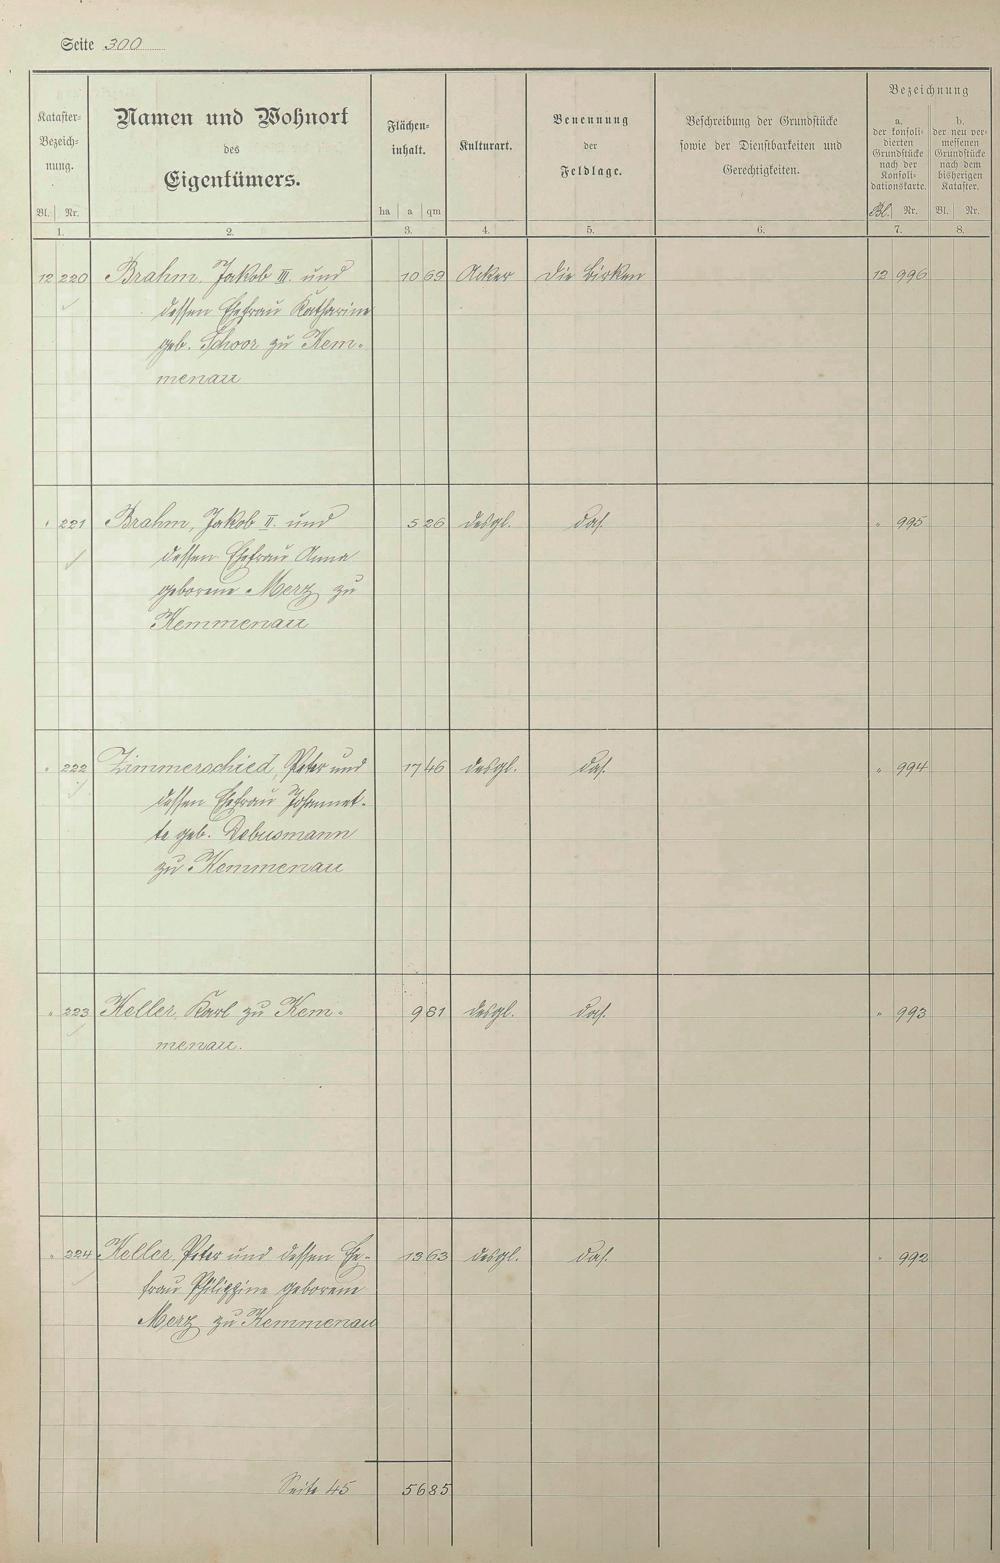 Seite 300
Kataster-
Bezeich-
nung.
Bl. Nr.
Namen und Wohnort
des
Eigentümers.
Flächen-
inhalt.
ha a qm
Kulturart.
Benennung
der
Feldlage.
Beschreibung der Grundstücke
sowie der Dienstbarkeiten und
Gerechtigkeiten.
Bezeichnung
a.
der konsoli-
dierten
Grundstücke
nach der
Konsoli-
dationskarte.
Bl. Nr.
b.
der neu ver-
messenen
Grundstücke
nach dem
bisherigen
Kataster.
Bl. Nr.
1. 2. 3. 4. 5. 6. 7. 8.
12 220 Brahm, Jakob III. und 10 69 Acker Die Birken 12 996
dessen Ehefrau Katharine
geb. Schoor zu Kem-
menau
" 221 Brahm, Jakob II. und 5 26 desgl. das. " 995
dessen Ehefrau Anna
geborene Merz zu
Kemmenau
" 222 Zimmerschied, Peter und 17 46 desgl. das. " 994
dessen Ehefrau Johannet-
te geb. Debusmann
zu Kemmenau
" 223 Keller, Karl zu Kem- 9 81 desgl. das. " 993
menau.
" 224 Keller, Peter und dessen Ehe- 13 63 desgl. das. " 992
frau Philippine geborene
Merz zu Kemmenau
Seite 45 56 85